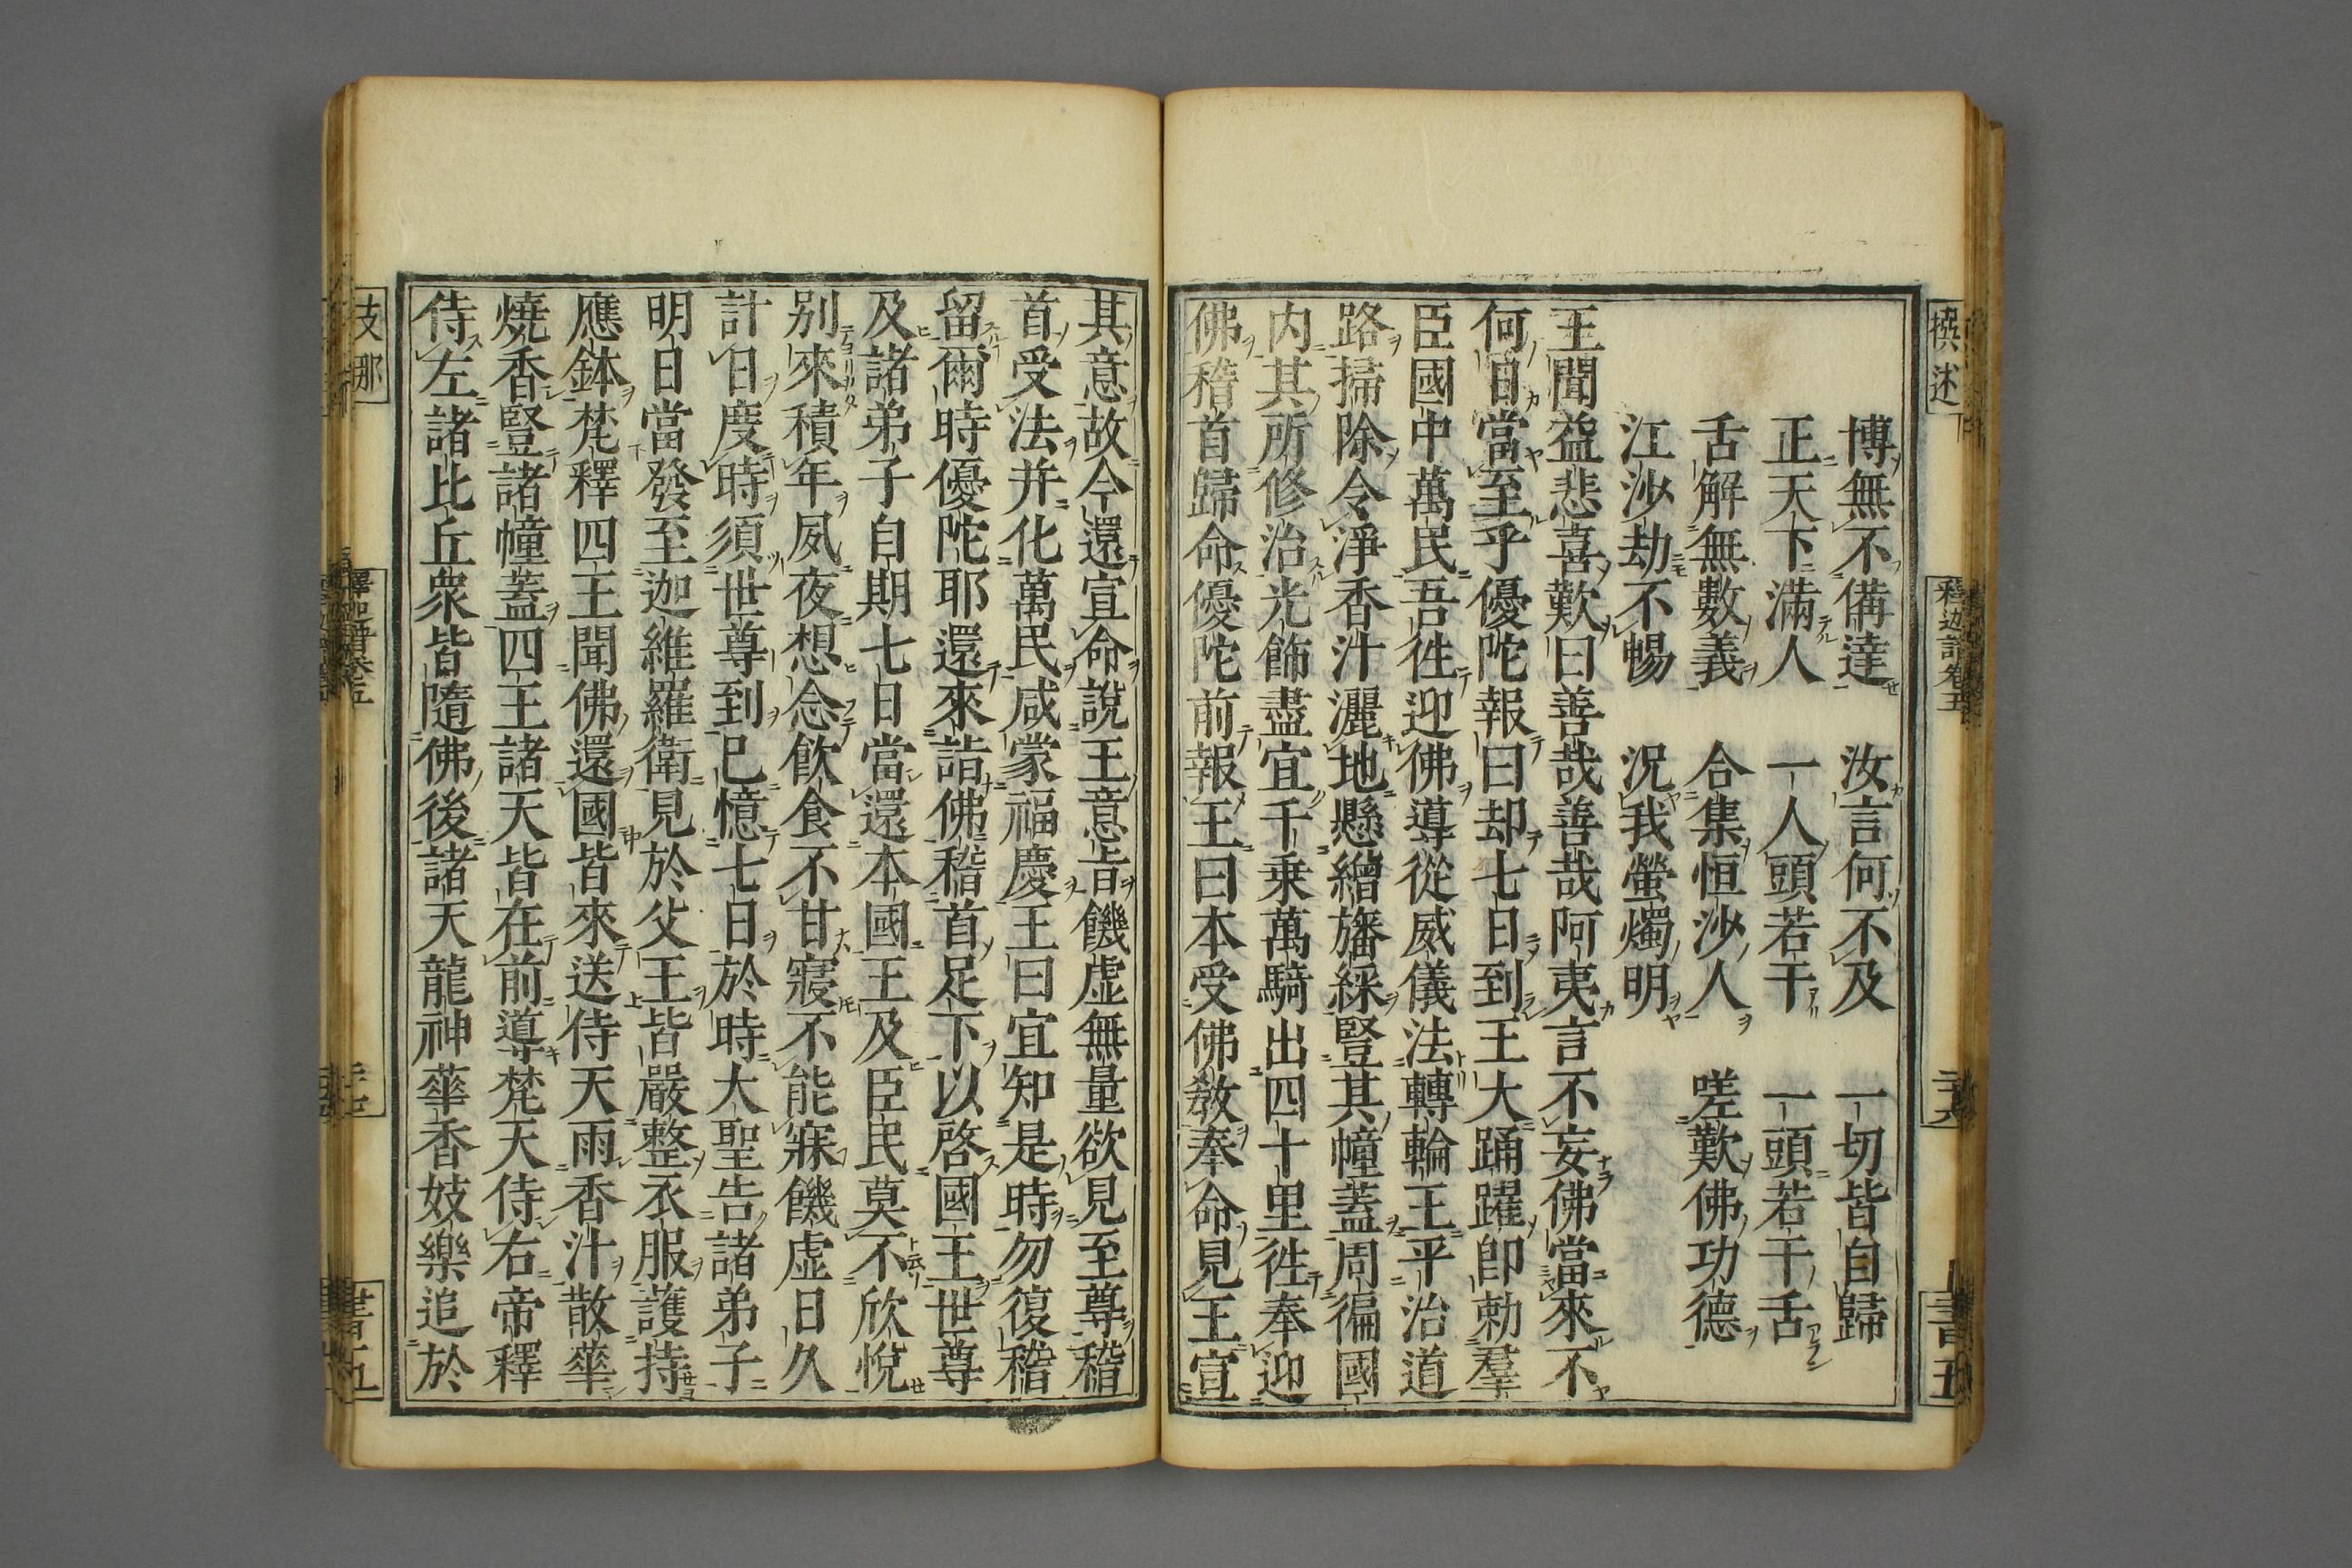 撰述
釋迦譜卷五
博無不備達　汝言何不及　一切皆自歸
正天下滿人　一人頭若干　一頭若干舌
舌解無數義　合集恒沙人　嗟歎佛功德
江沙劫不暢　況我螢燭明
王聞益悲喜歎曰善哉善哉阿夷言不妄佛當來不
何日當至乎優陀報曰却七日到王大踊躍即勅羣
臣國中萬民吾徃迎佛導從威儀法轉輪王平治道
路掃除令淨香汁灑地懸繒旛綵豎其幢蓋周徧國
内其所修治光飾盡宜千乗萬騎出四十里徃奉迎
佛稽首歸命優陀前報王曰本受佛教奉命見王宣
其意故今還宣命說王意旨饑虚無量欲見至尊稽
首受法并化萬民咸蒙福慶王曰宜知是時勿復稽
留爾時優陀耶還來詣佛稽首足下以啓國王世尊
及諸弟子自期七日當還本國王及臣民莫不欣悅
别來積年夙夜想念飲食不甘寢不能寐饑虚日久
計日度時須世尊到已憶七日於時大聖告諸弟子
明日當發至迦維羅衛見於父王皆嚴整衣服護持
應鉢梵釋四王聞佛還國皆來送侍天雨香汁散華
燒香豎諸幢蓋四王諸天皆在前導梵天侍右帝釋
侍左諸比丘衆皆隨佛後諸天龍神華香妓樂追於
支那